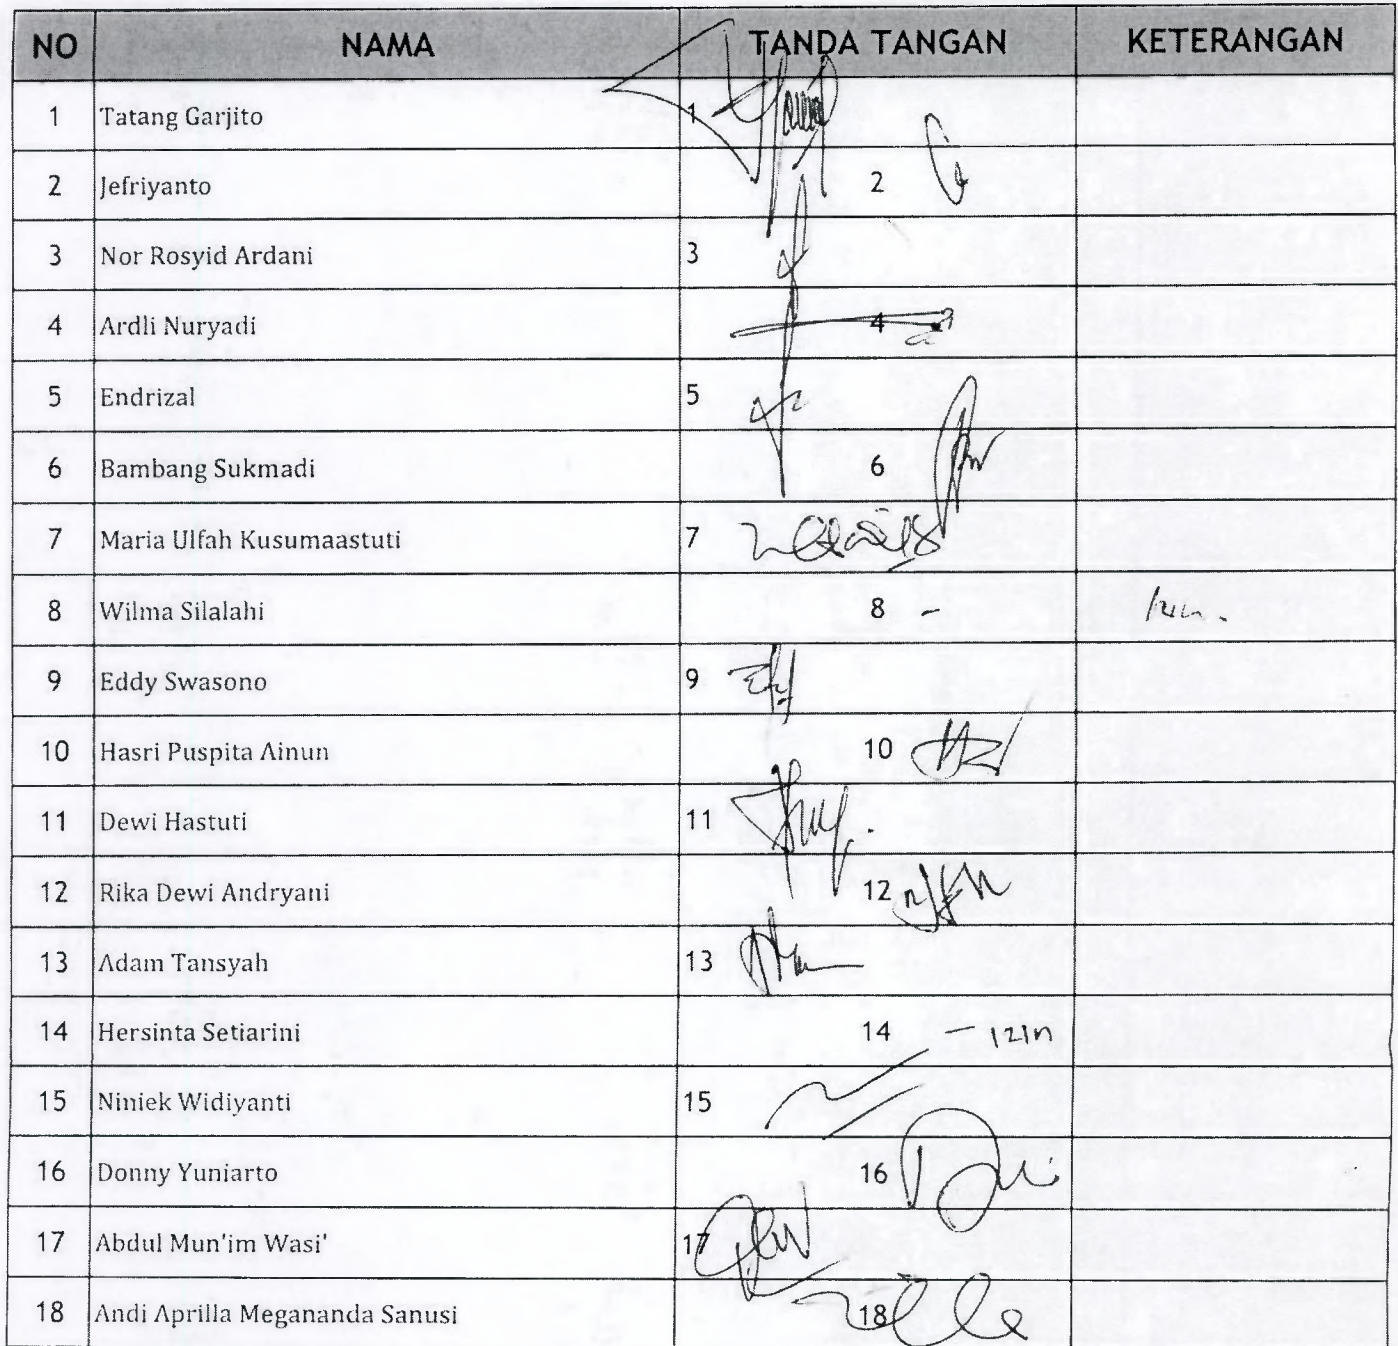 NO NAMA TANDA TANGAN KETERANGAN
1 Tatang Garjito 1
2 Jefriyanto 2
3 Nor Rosyid Ardani 3
4 Ardli Nuryadi 4
5 Endrizal 5
6 Bambang Sukmadi 6
7 Maria Ulfah Kusumaastuti 7
8 Wilma Silalahi 8 -
9 Eddy Swasono 9
10 Hasri Puspita Ainun 10
11 Dewi Hastuti 11
12 Rika Dewi Andryani 12
13 Adam Tansyah 13
14 Hersinta Setiarini 14 - izin
15 Niniek Widiyanti 15
16 Donny Yuniarto 16
17 Abdul Mun'im Wasi' 17
18 Andi Aprilla Megananda Sanusi 18